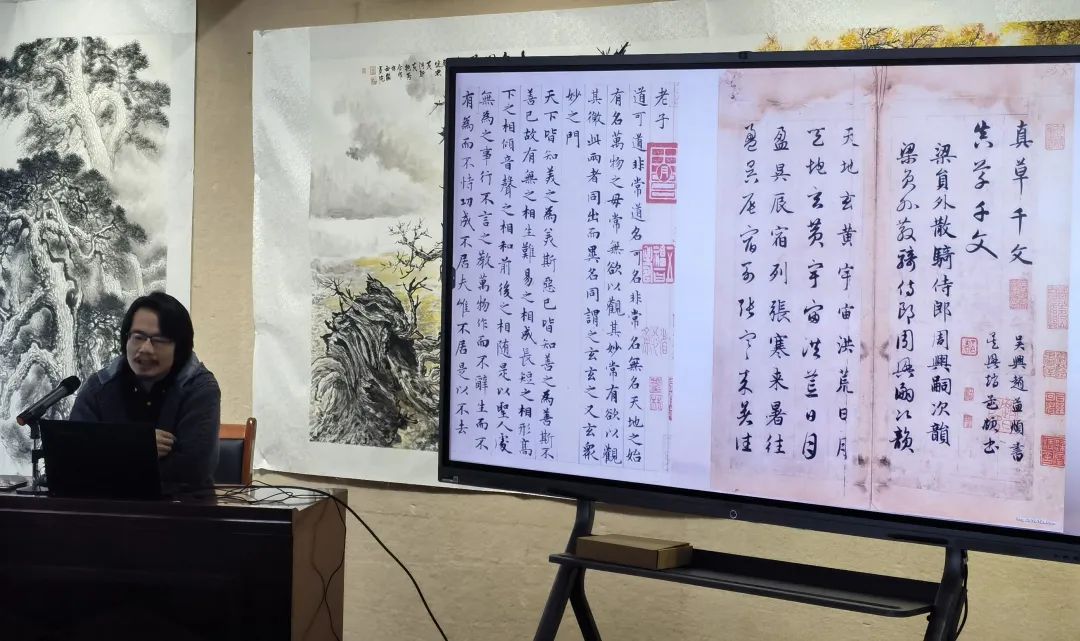 真草千文
吳興趙孟頫書
真草千文
吳興趙孟頫書
梁員外散騎侍郎周興嗣次韻
梁員外散騎侍郎周興嗣次韻
天地玄黄宇宙洪荒日月
天地玄黄宇宙洪荒日月
盈昃辰宿列張寒来暑往
盈昃辰宿列張寒来暑往
老子
道可道非常道名可名非常名無名天地之始
有名萬物之母常無欲以觀其妙常有欲以觀
其徼此兩者同出而異名同謂之玄玄之又玄衆
妙之門
天下皆知美之為美斯惡已皆知善之為善斯不
善已故有無之相生難易之相成長短之相形高
下之相傾音聲之相和前後之相隨是以聖人處
無為之事行不言之教萬物作而不辭生而不
有為而不恃功成不居夫惟不居是以不去